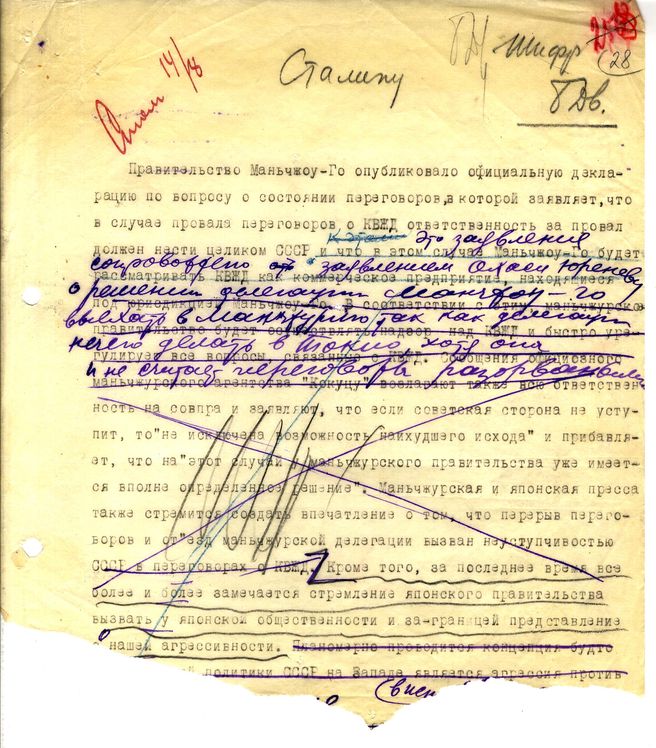 14/8
Шифр
28
Сталину
Правительство Маньчжоу-Го опубликовало официальную декла-
рацию по вопросу о состоянии переговоров,в которой заявляет,что
в случае провала переговоров о КВЖД ответственность за провал
должен нести целиком СССР и что в этом случае Маньчжоу-Го будет
Это заявления
сопровождено заявлением Юреневу
рассматривать КВЖД как коммерческое предприятие, находящиеся
о решении делегации
под юрисдикцией Маньчжоу-Го. В соответствии с этим манчжурское
выехать в Манчжурию, так как делегации
правительство будет осуществлять надзор над КВЖД и быстро уре-
нечего делать в Токио хотя она
гулирует все вопросы, связанные с КВЖД. Сообщения официозного
и не считает переговоры разорванными
маньчжурского агентства "Кокуцу" возлагают также всю ответствен-
ность на совпра и заявляют, что если советская сторона не усту-
пит, то"не исключена возможность наихудшего исхода" и прибавля-
ет, что на"этот случай у маньчжурского правительства уже имеет-
ся вполне определенное решение". Маньчжурская и японская пресса
также стремится создать впечатление о том, что перерыв перего-
воров и от"езд маньчжурской делегации вызван неуступчивостью
СССР в переговорах о КВЖД. Кроме того, за последнее время все
более и более замечается стремление японского правительства
вызвать у японской общественности и за-границей представление
о нашей агрессивности. Планомерно проводится концепция будто
политики СССР на Западе является агрессия против